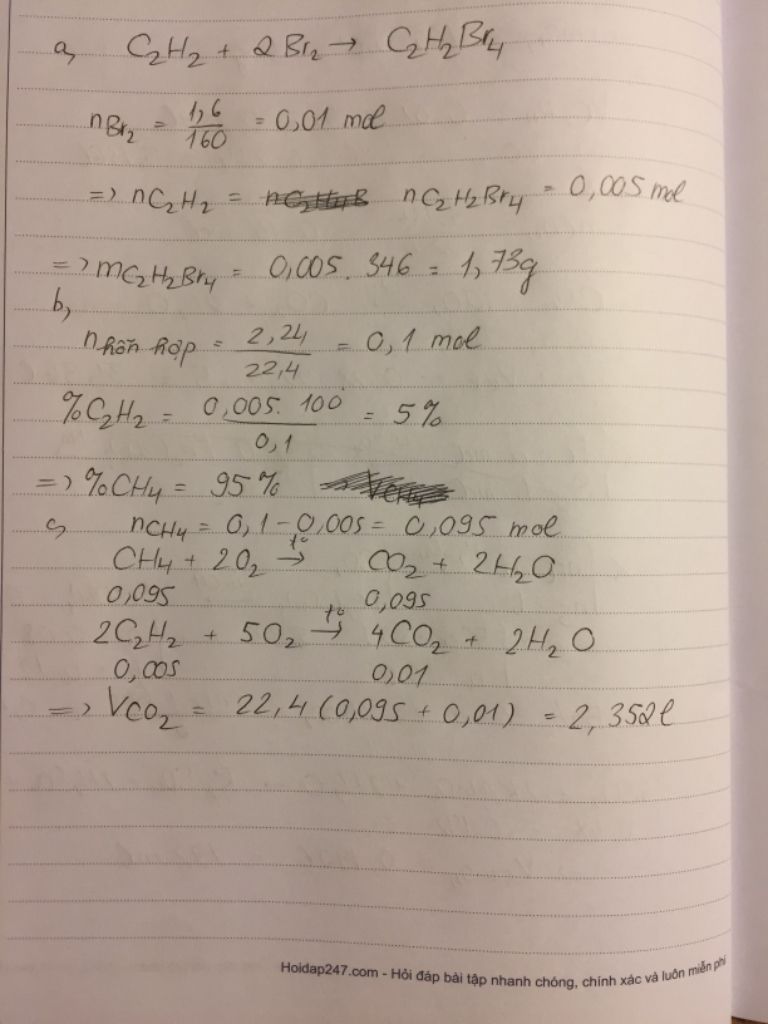 a, C₂H₂ + 2Br₂ → C₂H₂Br₄
nBr₂ = 1,6/160 = 0,01 mol
=> nC₂H₂ = nC₂H₂Br₄ = 0,005 mol
=> mC₂H₂Br₄ = 0,005. 346 = 1,73g
b,
nhỗn hợp = 2,24/22,4 = 0,1 mol
%C₂H₂ = 0,005. 100/0,1 = 5%
=> %CH₄ = 95%
c, nCH₄ = 0,1 - 0,005 = 0,095 mol
CH₄ + 2O₂ t°→ CO₂ + 2H₂O
0,095 0,095
2C₂H₂ + 5O₂ t°→ 4CO₂ + 2H₂O
0,005 0,01
=> VCO₂ = 22,4(0,095 + 0,01) = 2,352l
Hoidap247.com - Hỏi đáp bài tập nhanh chóng, chính xác và luôn miễn phí